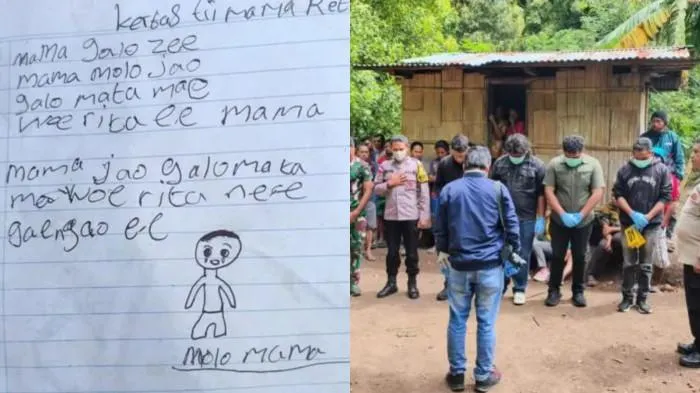 kertas tii mama Ret
mama galo zee
mama molo jao
galo mata mae
woe rita ee mama
mama jao galo mata
mae woe rita ne e
gae ngao ee
molo mama